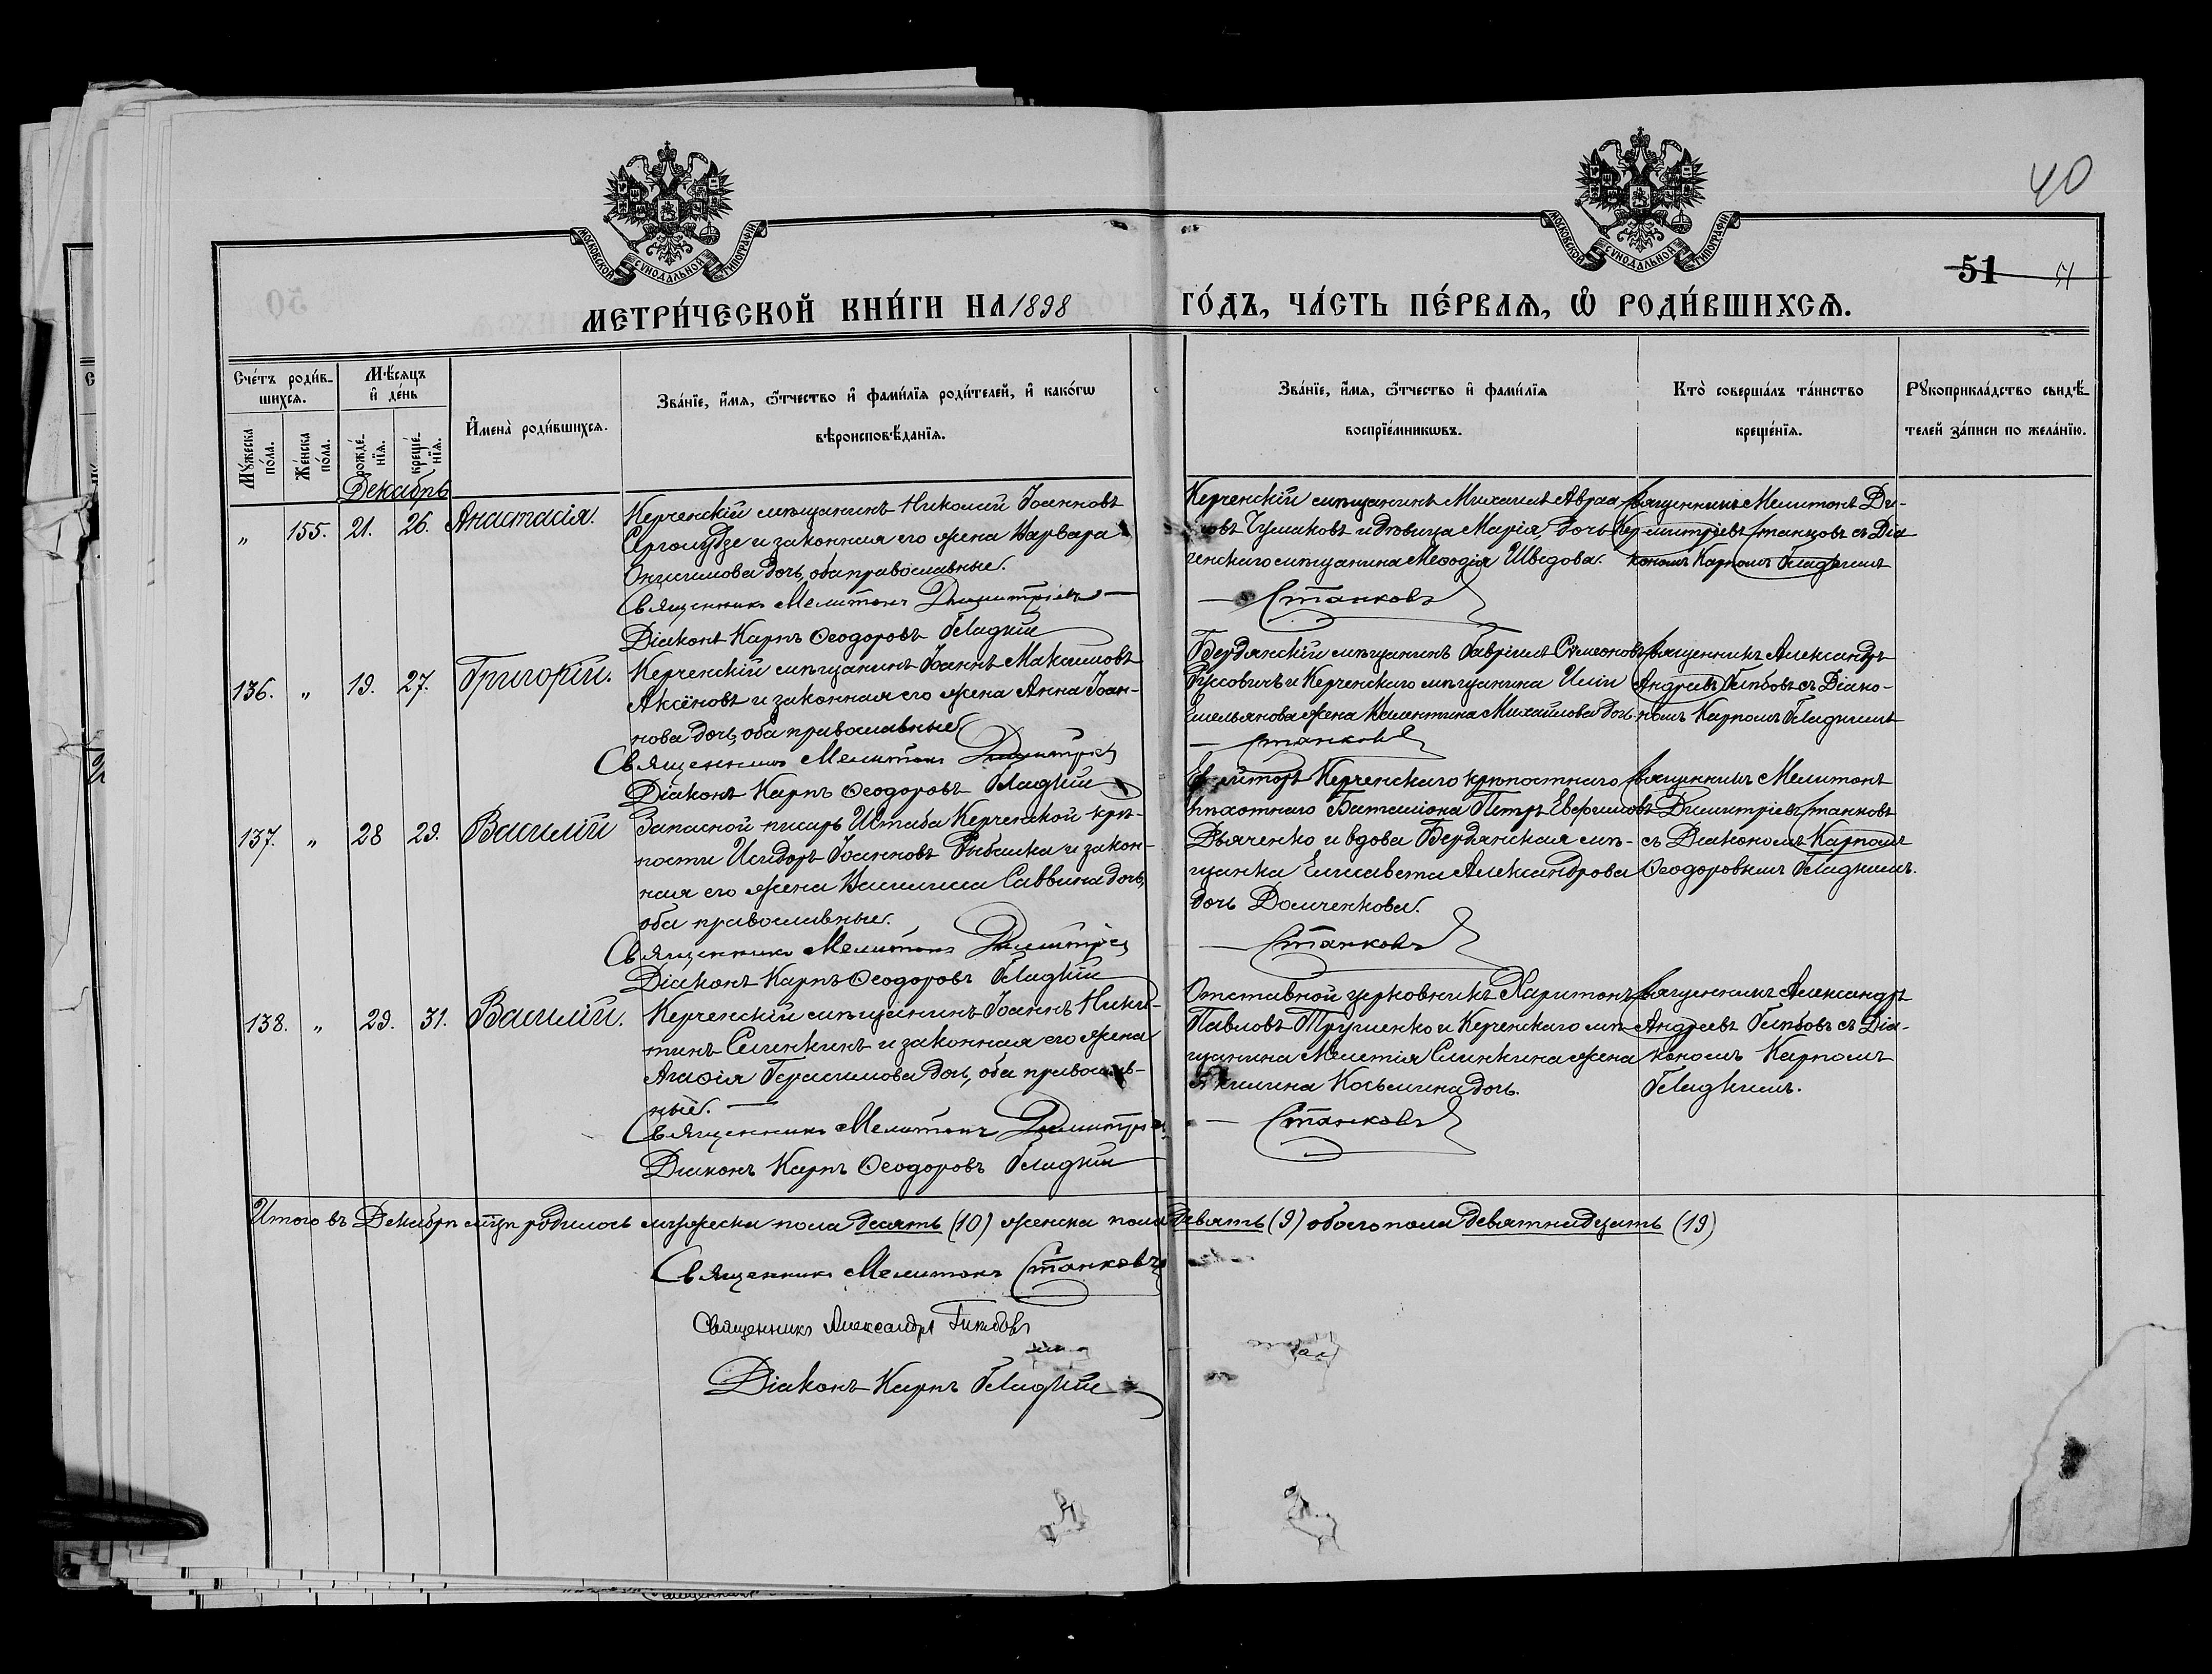 40
МОСКОВСКОЙ СѴНОДАЛЬНОЙ ТИПОГРАФІИ
МОСКОВСКОЙ СѴНОДАЛЬНОЙ ТИПОГРАФІИ
51
МЕТРИ́ЧЕСКОЙ КНИ́ГИ НА 1898 ГО́ДЪ, ЧА́СТЬ ПЕ́РВАѦ, Ѽ РОДИ́ВШИХСѦ.
Сче́тъ роди́в-
шихсѧ.
Мꙋ́жеска
по́ла.
Же́нска
по́ла.
Мѣ́сѧцъ
и҆ де́нь
рожде́-
нїѧ.
креще́-
нїѧ.
И҆мена̀ роди́вшихсѧ.
Зва́нїе, и҆́мѧ, ѻ҆́тчество и҆ фами́лїѧ роди́телей, и҆ како́гѡ
вѣроисповѣ́данїѧ.
Зва́нїе, и҆́мѧ, ѻ҆́тчество и҆ фами́лїѧ
воспрїе́мникѡвъ.
Кто̀ соверша́лъ та́инство
креще́нїѧ.
Рꙋкоприкла́дство свидѣ́-
телей за́писи по жела́нїю.
Декабрь
„ 155. 21. 26. Анастасія.
Керченскій мѣщанинъ Николай Іоанновъ
и законная его жена Варвара
Онисимова дочь, оба православные.
Священникъ Мелитонъ Димитріевъ
Діаконъ Карпъ Ѳеодоровъ Гладкій
Керченскій мѣщанинъ Михаилъ Авраа-
мовъ Чумаковъ и дѣвица Марія, дочь Кер-
ченскаго мѣщанина Меѳодія Шведова.
Станковъ
Священникъ Мелитонъ Ди-
митріевъ Станковъ съ Діа-
кономъ Карпомъ Гладкимъ
136. „ 19. 27. Григорій.
Керченскій мѣщанинъ Іоаннъ Максимовъ
Аксёновъ и законная его жена Анна Іоан-
нова дочь, оба православные
Священникъ Мелитонъ Димитріевъ
Діаконъ Карпъ Ѳеодоровъ Гладкій
Бердянскій мѣщанинъ Гавріилъ Сѵмеоновъ
и Керченскаго мѣщанина Иліи
Емельянова жена Валентина Михайлова дочь.
Станковъ
Священникъ Александръ
Андреевъ Глѣбовъ съ Діако-
номъ Карпомъ Гладкимъ
137. „ 28 29. Василій
Запасной писарь Штаба Керченской крѣ-
пости Исидоръ Іоанновъ Рыбалка и закон-
ная его жена Василиса Саввина дочь,
оба православные.
Священникъ Мелитонъ Димитріевъ
Діаконъ Карпъ Ѳеодоровъ Гладкій
Керченскаго крѣпостного
пѣхотнаго Баталіона Петръ Евфимовъ
Дьяченко и вдова Бердянская мѣ-
щанка Елисавета Александрова
дочь Домченкова.
Станковъ
Священникъ Мелитонъ
Димитріевъ Станковъ
съ Діакономъ Карпомъ
Ѳеодоровымъ Гладкимъ.
138. „ 29. 31. Василій.
Керченскій мѣщанинъ Іоаннъ Ники-
тинъ Слинкинъ и законная его жена
Агаѳія Герасимова дочь, оба православ-
ные.
Священникъ Мелитонъ Димитріевъ
Діаконъ Карпъ Ѳеодоровъ Гладкій
Отставной церковникъ Харитонъ
Павловъ Трушенко и Керченскаго мѣ-
щанина Мелетія Слинкина жена
Акилина Косьмина дочь.
Станковъ
Священникъ Александръ
Андреевъ Глѣбовъ съ Діа-
кономъ Карпомъ
Гладкимъ.
Итого въ Декабрѣ мцѣ родилось мужеска пола десять (10) женска пола девять (9) обоего пола девятнадцать (19)
Священникъ Мелитонъ Станковъ
Священникъ Александръ Глѣбовъ
Діаконъ Карпъ Гладкій